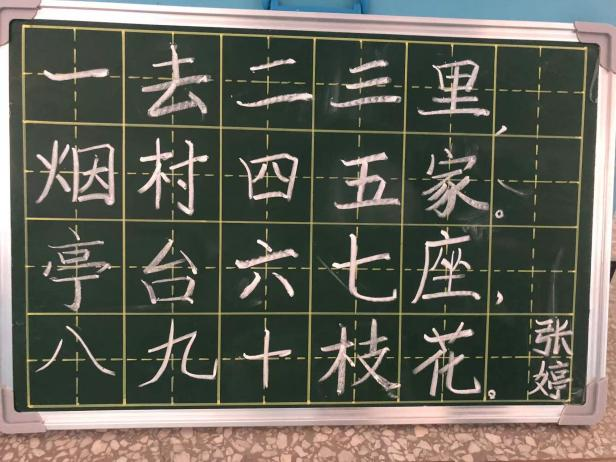 一去二三里，
烟村四五家。
亭台六七座，
八九十枝花。
张婷